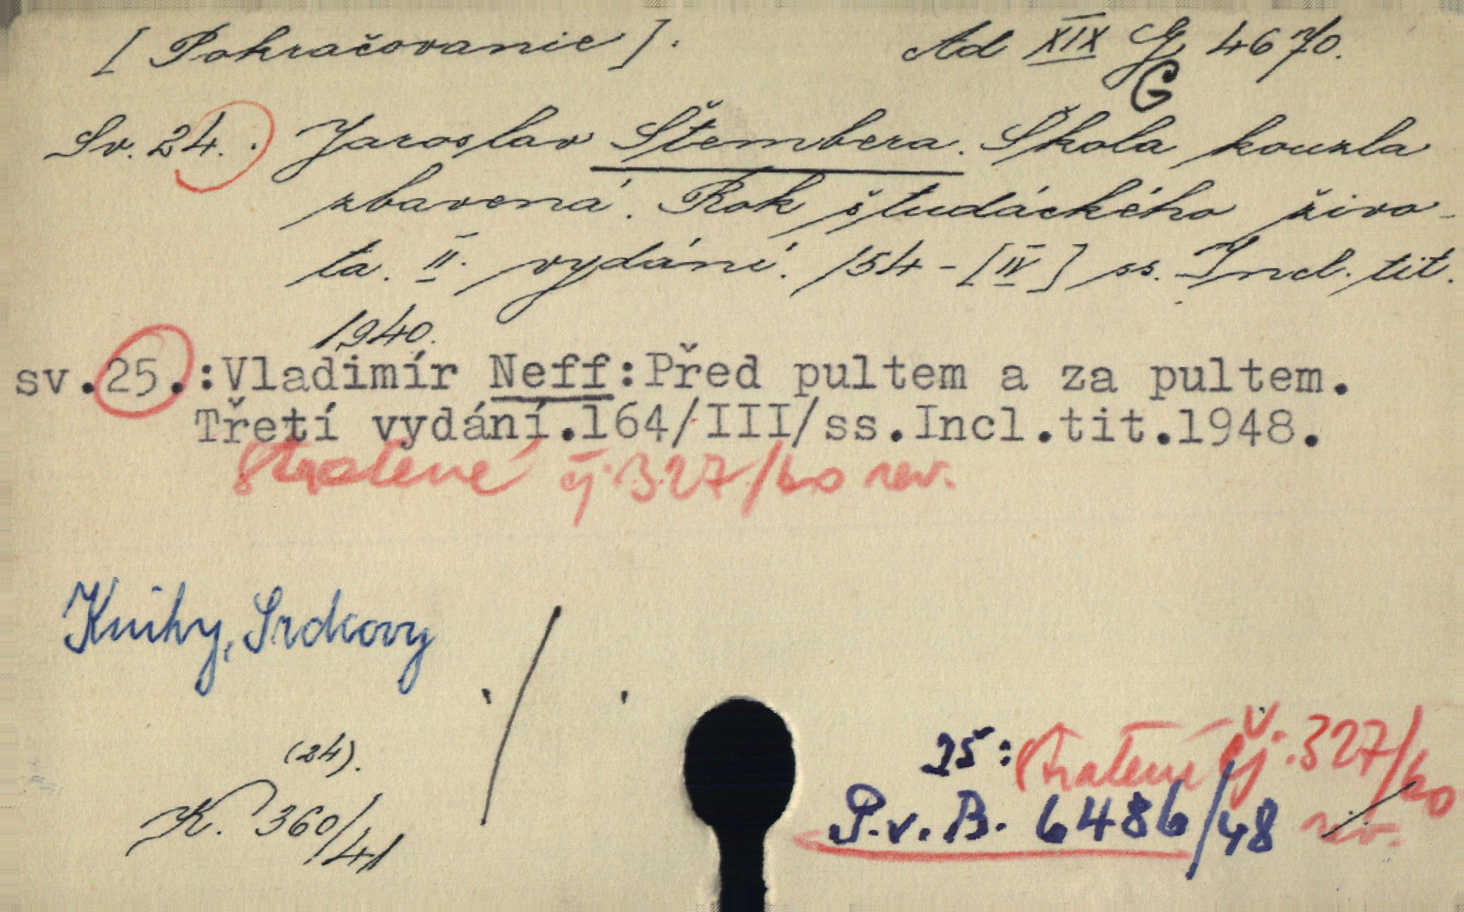 [Pokračovanie]. Ad XIX G 4670.
G
Sv. 24. Jaroslav Štembera. Škola kouzla
zbavená. Rok študáckého živo-
ta. II. vydání. 154-[IV] ss. Incl. tit.
1940.
sv.25.:Vladimír Neff:Před pultem a za pultem.
Třetí vydání.164/III/ss.Incl.tit.1948.
stratené čj. 327/60 rev.
Knihy, Srdcovy
(24).
K. 360/41
25: stratení čj. 327/60
P.v.B. 6486/48 rev.